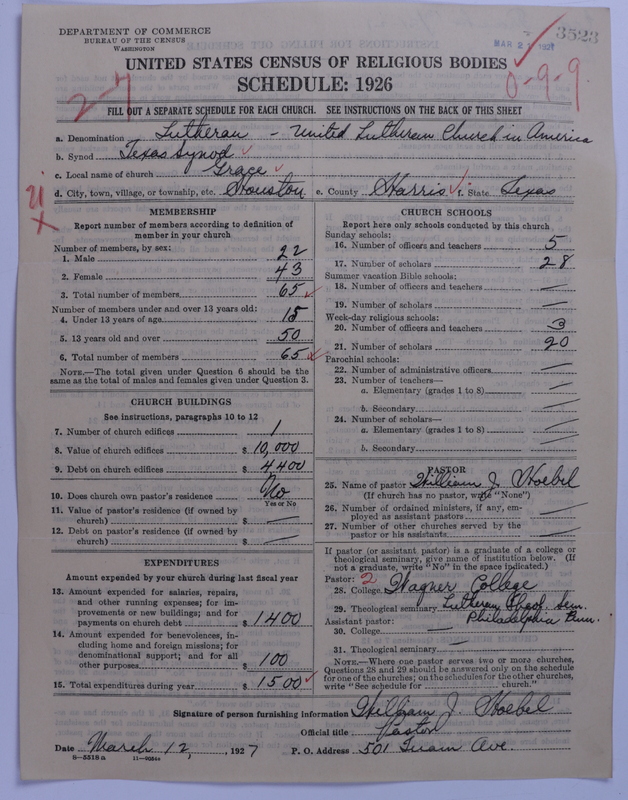 DEPARTMENT OF COMMERCE
BUREAU OF THE CENSUS
WASHINGTON
MAR 21 1927
3523
UNITED STATES CENSUS OF RELIGIOUS BODIES
SCHEDULE: 1926
2-7
0-9-9.
FILL OUT A SEPARATE SCHEDULE FOR EACH CHURCH. SEE INSTRUCTIONS ON THE BACK OF THIS SHEET
a. Denomination Lutheran - United Lutheran Church in America
b. Synod Texas Synod
c. Local name of church Grace
d. City, town, village, or township, etc. Houston e. County Harris f. State Texas
MEMBERSHIP
Report number of members according to definition of
member in your church
Number of members, by sex:
1. Male 22
2. Female 43
3. Total number of members 65
Number of members under and over 13 years old:
4. Under 13 years of age 15
5. 13 years old and over 50
6. Total number of members 65
NOTE.—The total given under Question 6 should be
same as the total of males and females given under Question 3.
CHURCH BUILDINGS
See instructions, paragraphs 10 to 12
7. Number of church edifices 1
8. Value of church edifices $ 10,000
9. Debt on church edifices $ 4400
10. Does church own pastor's residence No
Yes or No
11. Value of pastor's residence (if owned by
church) $ —
12. Debt on pastor's residence (if owned by
church) $ —
EXPENDITURES
Amount expended by your church during last fiscal year
13. Amount expended for salaries, repairs,
and other running expenses; for im-
provements or new buildings; and for
payments on church debt $ 1400
14. Amount expended for benevolences, in-
cluding home and foreign missions; for
denominational support; and for all
other purposes $ 100
15. Total expenditures during year $ 1500
CHURCH SCHOOLS
Report here only schools conducted by this church
Sunday schools:
16. Number of officers and teachers 5
17. Number of scholars 28
Summer vacation Bible schools:
18. Number of officers and teachers —
19. Number of scholars —
Week-day religious schools:
20. Number of officers and teachers 3
21. Number of scholars 20
Parochial schools:
22. Number of administrative officers —
23. Number of teachers—
a. Elementary (grades 1 to 8) —
b. Secondary —
24. Number of scholars—
a. Elementary (grades 1 to 8) —
b. Secondary —
PASTOR
25. Name of pastor William J. Hoebel
(If church has no pastor, write "None")
26. Number of ordained ministers, if any, em-
ployed as assistant pastors —
27. Number of other churches served by the
pastor or his assistants —
If pastor (or assistant pastor) is a graduate of a college or
theological seminary, give name of institution below. (If
not a graduate, write "No" in the space indicated.)
Pastor: 2
28. College Wagner College
29. Theological seminary Lutheran Theol. Sem.
Assistant pastor: Philadelphia Penn.
30. College —
31. Theological seminary —
NOTE.—Where one pastor serves two or more churches,
Questions 28 and 29 should be answered only on the schedule
for one of the churches; on the schedules for the other churches,
write "See schedule for church."
Signature of person furnishing information William J. Hoebel
Official title Pastor
Date March 12, 1927 P. O. Address 501 Tuam Ave.
8-5518a 11-9054a